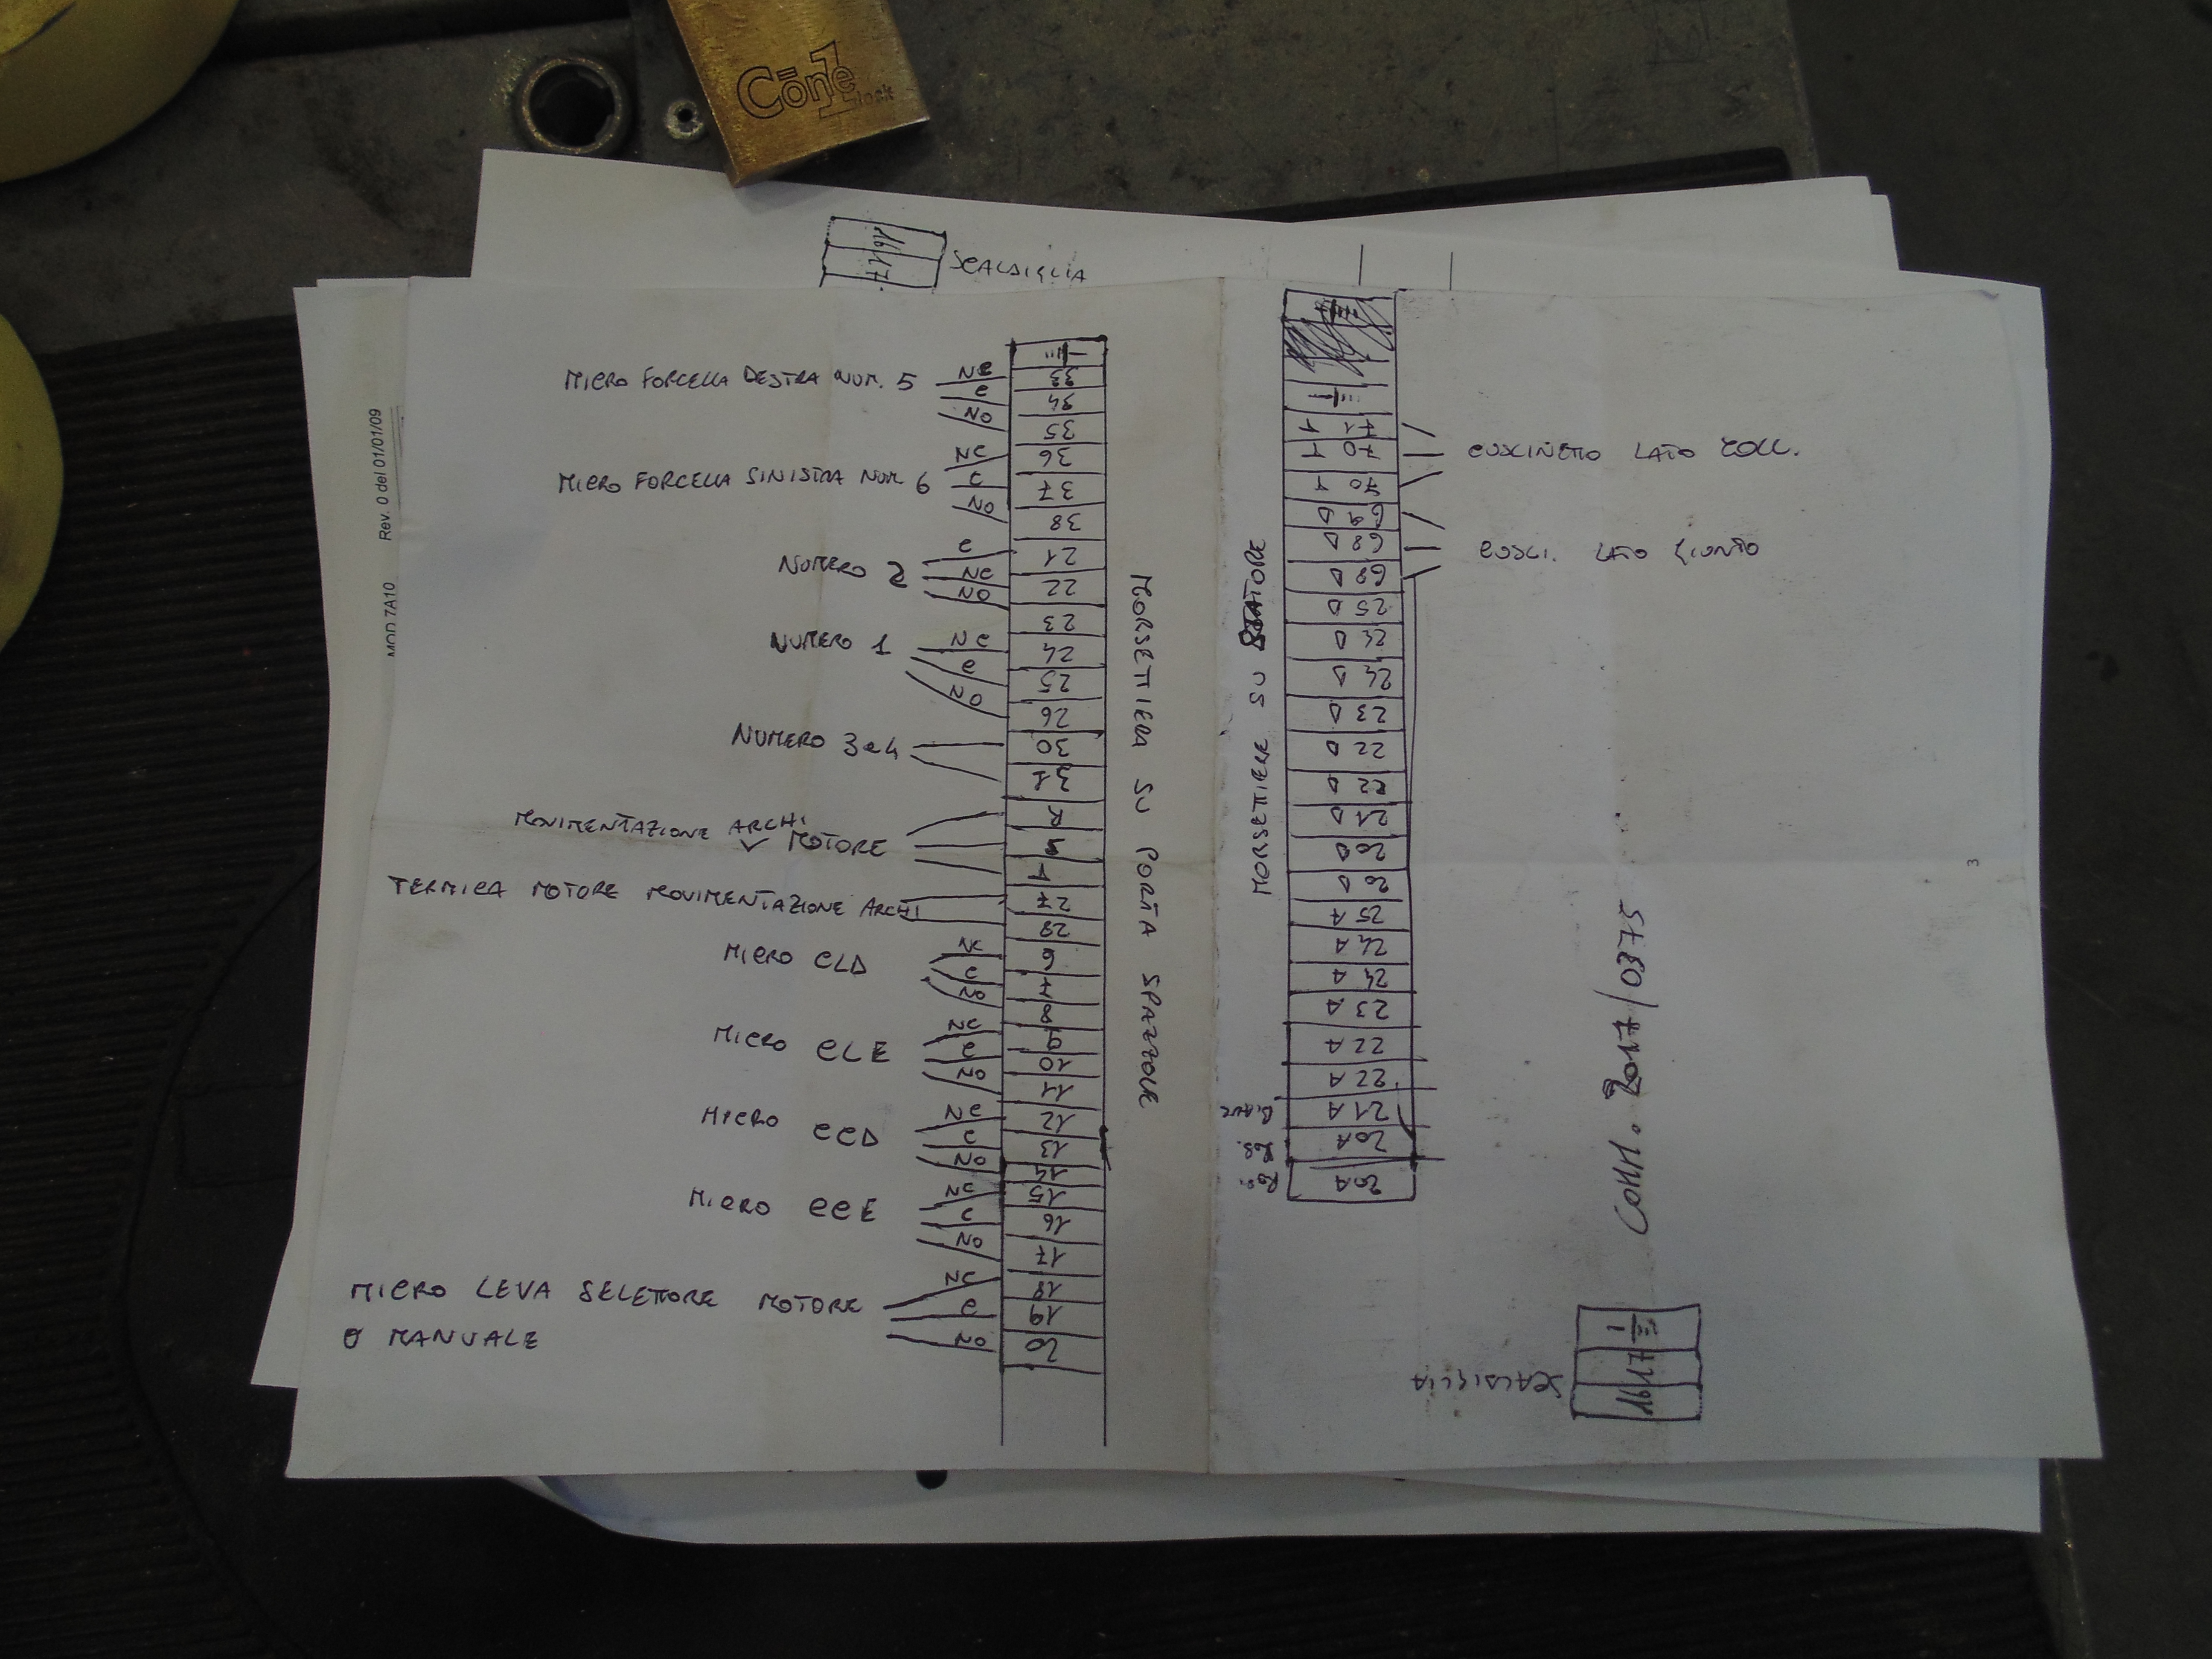 Cōn1e
SCALDIGLIA
16 17
MOD 7A10 Rev. 0 del 01/01/09
MICRO FORCELLA DESTRA NUM. 5
NC
C
NO
33
34
35
MICRO FORCELLA SINISTRA NUM 6
NC
C
NO
36
37
38
NUMERO 2
C
NC
NO
21
22
23
NUMERO 1
NC
C
NO
24
25
26
NUMERO 3 e 4
30
31
MOVIMENTAZIONE ARCHI
MOTORE
TERMICA MOTORE MOVIMENTAZIONE ARCHI
27
28
MICRO CLD
NC
C
NO
6
7
8
MICRO CLE
NC
C
NO
9
10
11
MICRO CCD
NC
C
NO
12
13
14
MICRO CCE
NC
C
NO
15
16
17
MICRO LEVA SELETTORE MOTORE
O MANUALE
NC
C
NO
18
19
20
MORSETTIERA SU PORTA SPAZZOLE
MORSETTIERE SU STATORE
71 1
70 1
70 1
CUSCINETTO LATO COLL.
69 D
68 D
68 D
CUSCI. LATO GIUNTO
25 D
24 D
24 D
23 D
22 D
22 D
21 D
20 D
20 D
25 A
24 A
24 A
23 A
22 A
22 A
21 A
20 A
20 A
COMM. 2017/0375
SCALDIGLIA
16 17
3